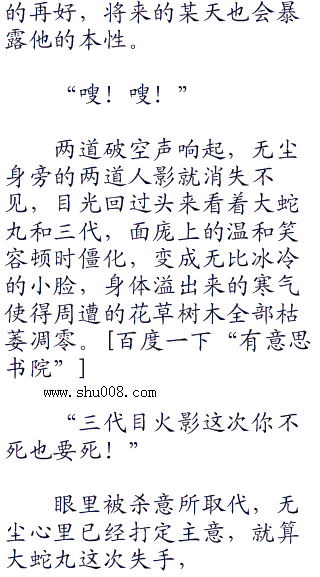 的再好，将来的某天也会暴
露他的本性。
“嗖！嗖！”
两道破空声响起，无尘
身旁的两道人影就消失不
见，目光回过头来看着大蛇
丸和三代，面庞上的温和笑
容顿时僵化，变成无比冰冷
的小脸，身体溢出来的寒气
使得周遭的花草树木全部枯
萎凋零。[百度一下“有意思
书院”]
www.shu008.com
“三代目火影这次你不
死也要死！”
眼里被杀意所取代，无
尘心里已经打定主意，就算
大蛇丸这次失手，